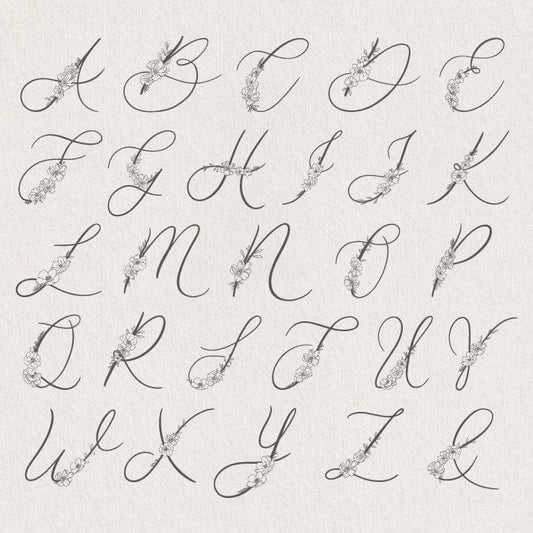 A B C D E
F G H I J K
L M N O P
Q R S T U V
W X Y Z &